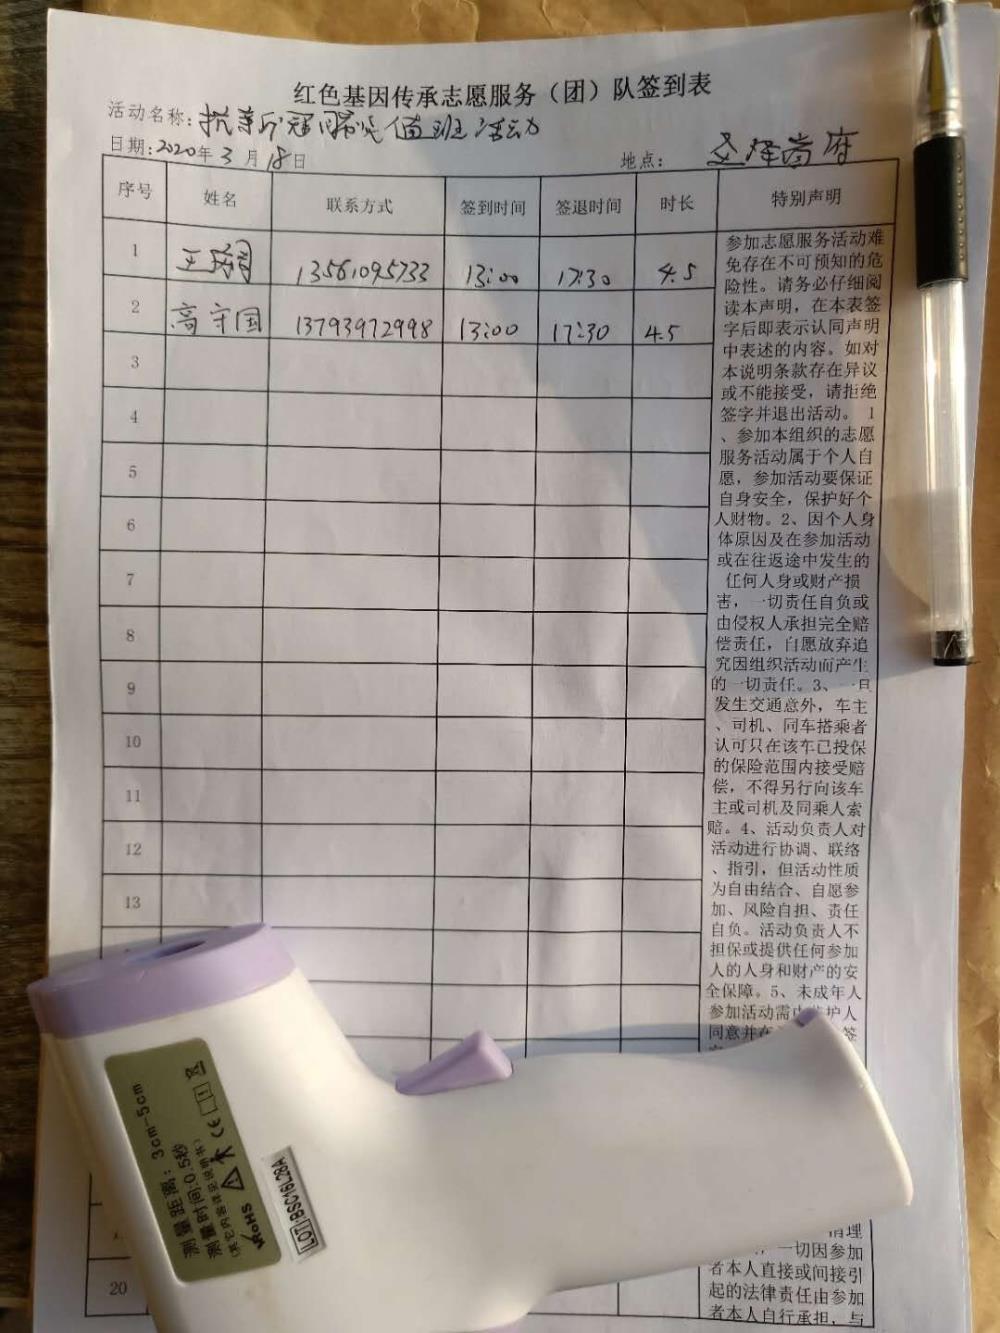 红色基因传承志愿服务（团）队签到表
活动名称:抗新冠 值班活动
日期:2020年3月18日 地点：
序号 姓名 联系方式 签到时间 签退时间 时长 特别声明
1 王 13561095733 13:00 17:30 4.5
2 高守国 13793972998 13:00 17:30 4.5
3
4
5
6
7
8
9
10
11
12
13
20
参加志愿服务活动难
免存在不可预知的危
险性。请务必仔细阅
读本声明，在本表签
字后即表示认同声明
中表述的内容。如对
本说明条款存在异议
或不能接受，请拒绝
签字并退出活动。 1
、参加本组织的志愿
服务活动属于个人自
愿，参加活动要保证
自身安全，保护好个
人财物。2、因个人身
体原因及在参加活动
或在往返途中发生的
任何人身或财产损
害，一切责任自负或
由侵权人承担完全赔
偿责任，自愿放弃追
究因组织活动而产生
的一切责任。3、一旦
发生交通意外，车主
、司机、同车搭乘者
认可只在该车已投保
的保险范围内接受赔
偿，不得另行向该车
主或司机及同乘人索
赔。4、活动负责人对
活动进行协调、联络
、指引，但活动性质
为自由结合、自愿参
加、风险自担、责任
自负。活动负责人不
担保或提供任何参加
人的人身和财产的安
全保障。5、未成年人
参加活动需由监护人
同意并在 签
清理
，一切因参加
者本人直接或间接引
起的法律责任由参加
者本人自行承担，与
测量距离：3cm-5cm
测量时间:0.5秒
(其它内容详见说明书)
RoHS CE
LOT BSC16L28A